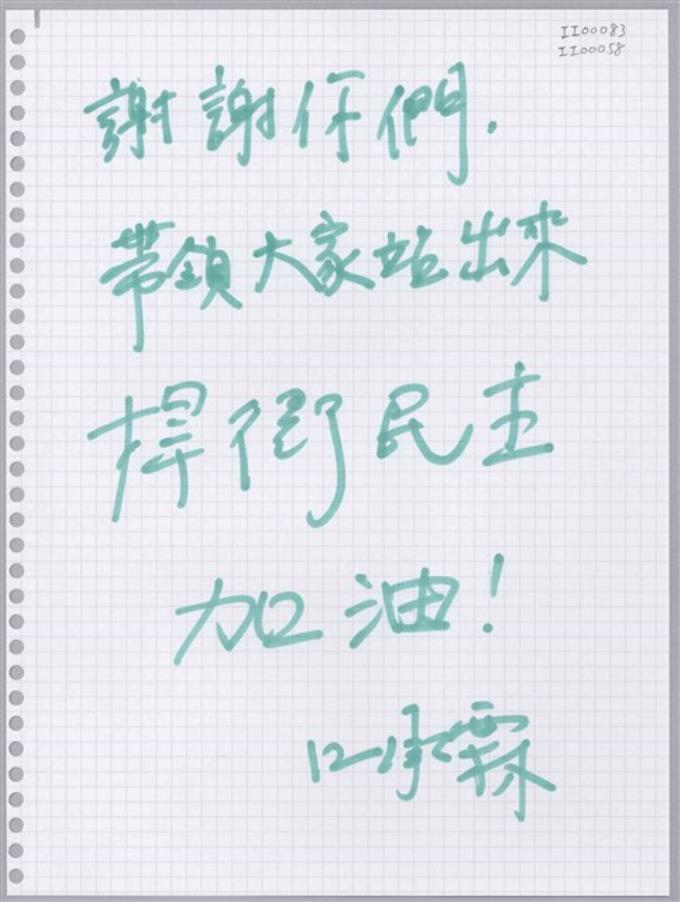 II00083
II00058
謝謝你們.
帶領大家站出來
捍衛民主
加油!
承霖